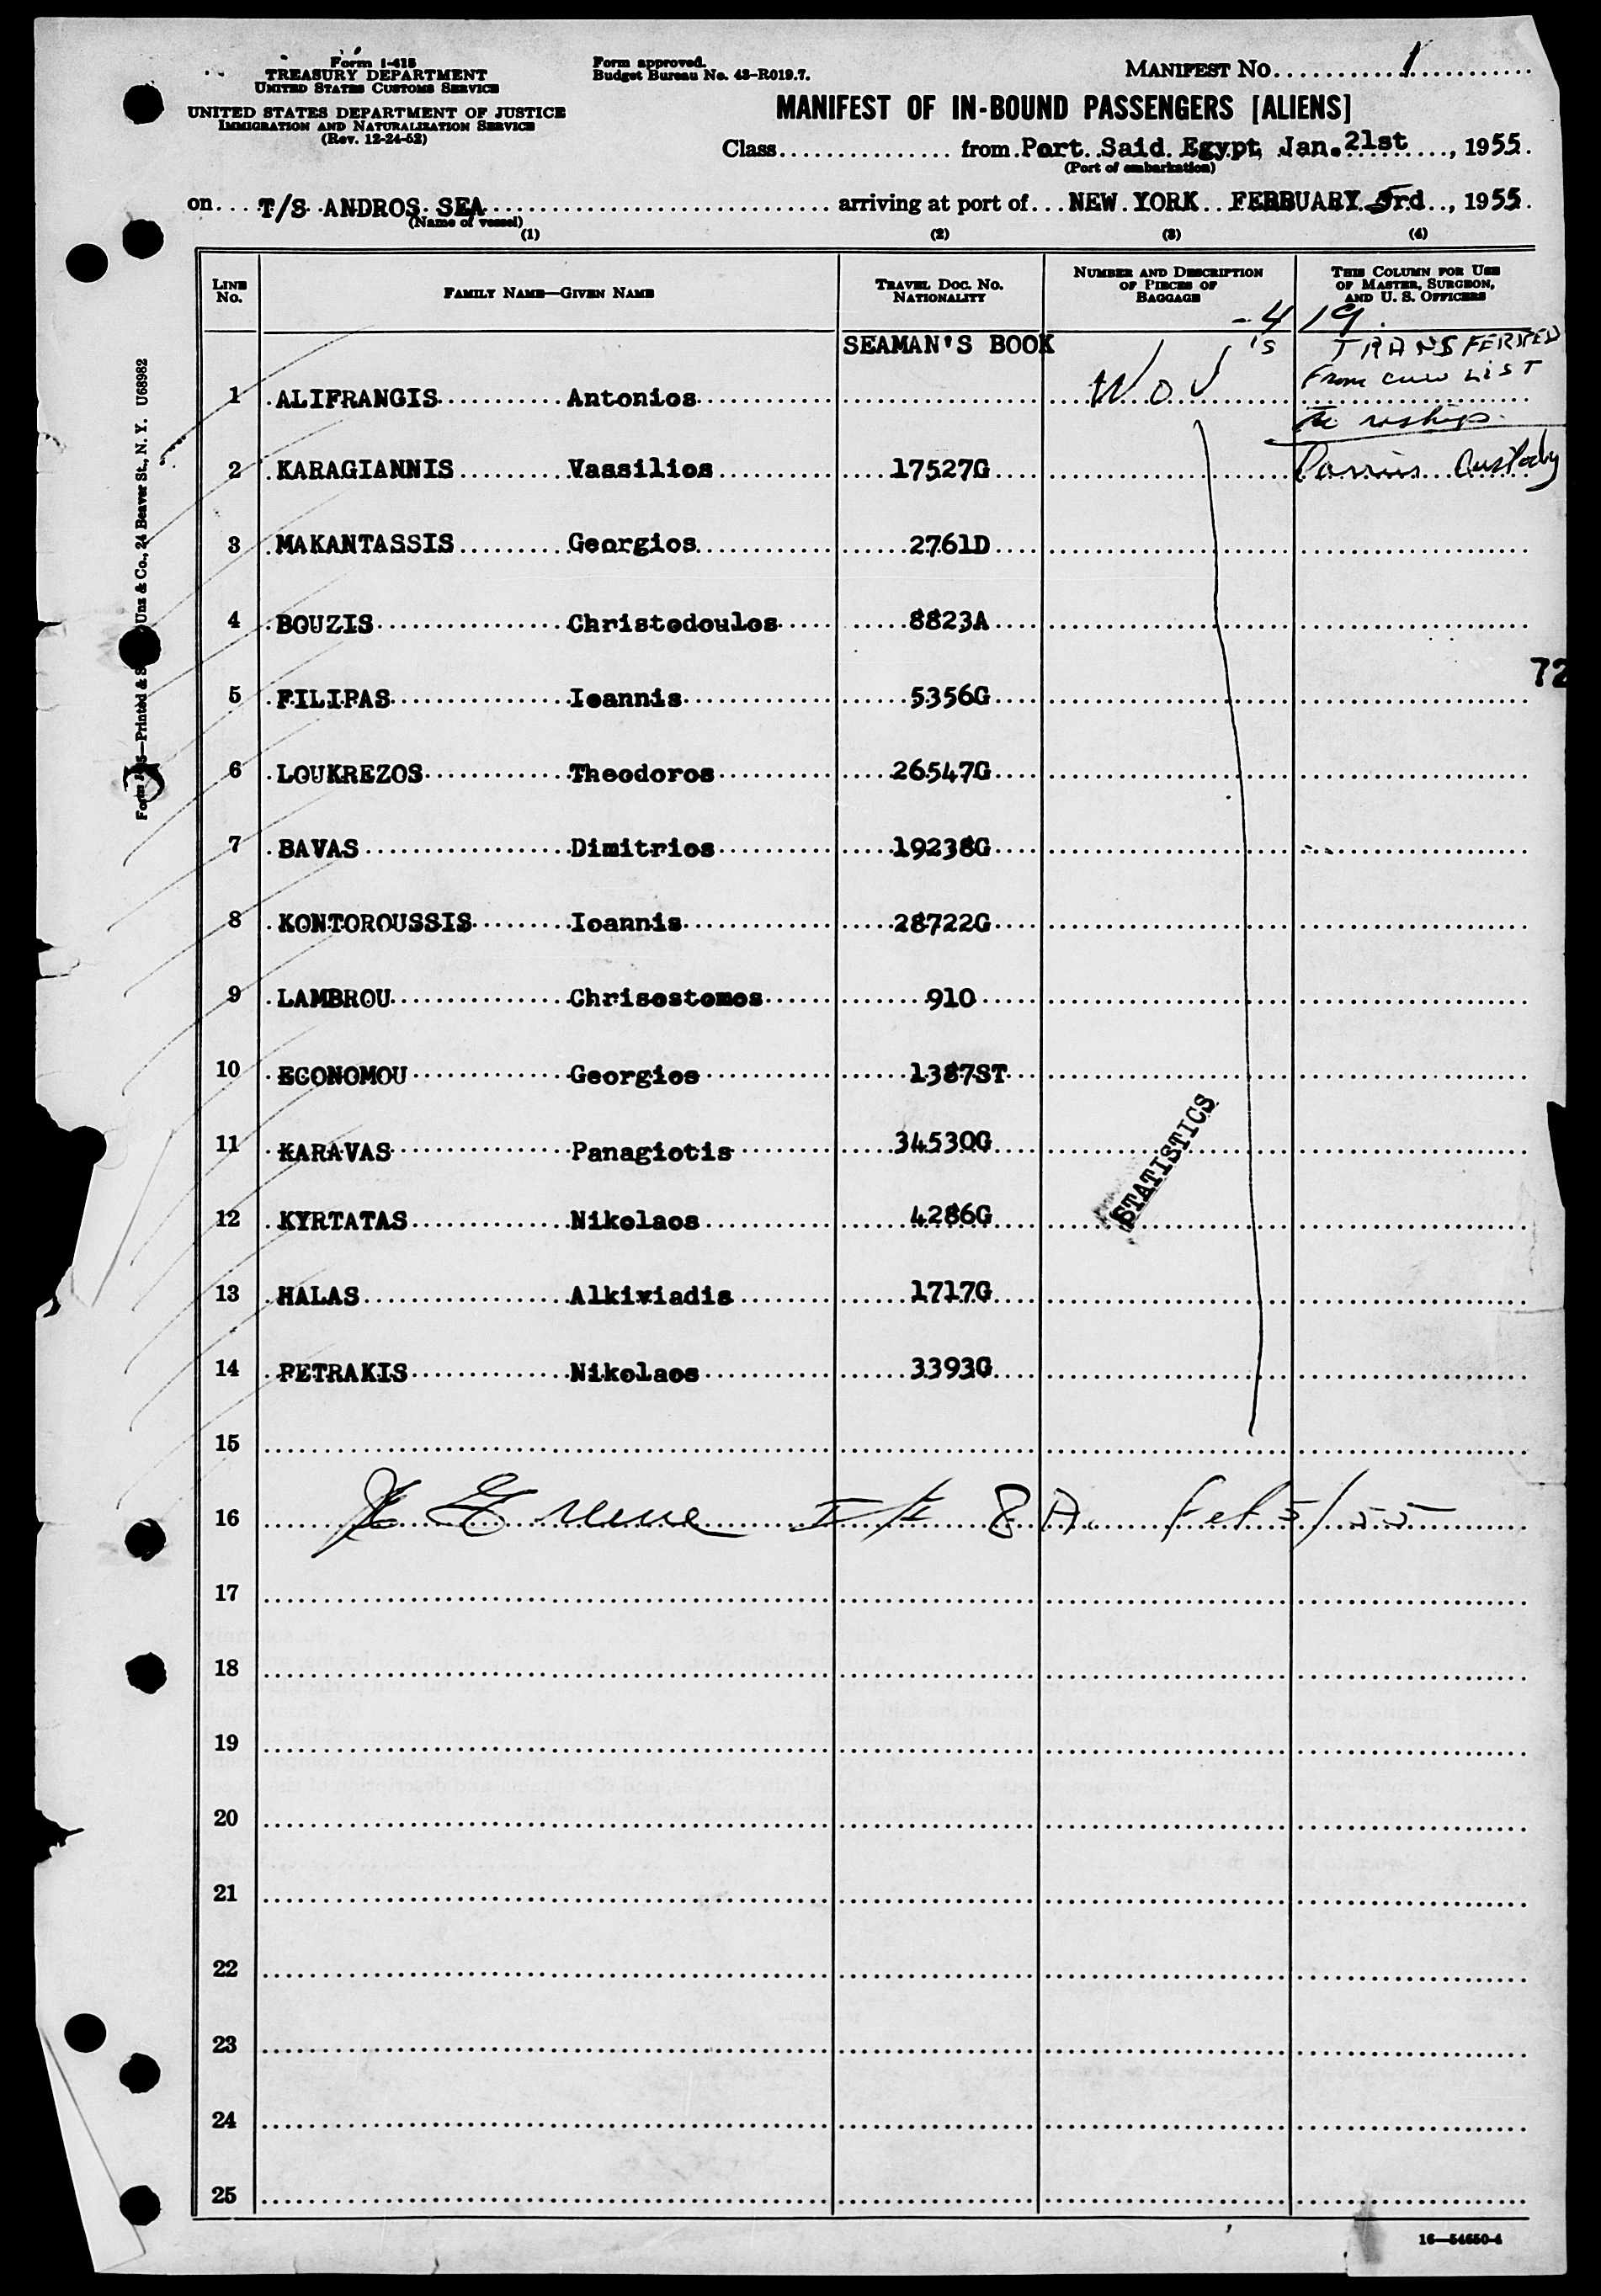 Form I-415
TREASURY DEPARTMENT
UNITED STATES CUSTOMS SERVICE
UNITED STATES DEPARTMENT OF JUSTICE
IMMIGRATION AND NATURALIZATION SERVICE
(Rev. 12-24-52)
Form approved.
Budget Bureau No. 43-R019.7.
MANIFEST NO. 1
MANIFEST OF IN-BOUND PASSENGERS [ALIENS]
Class from Port Said Egypt, Jan. 21st, 1955.
(Port of embarkation)
on T/S ANDROS SEA arriving at port of NEW YORK FEBRUARY 5rd, 1955.
(Name of vessel)
(1) (2) (3) (4)
LINE NO. FAMILY NAME—GIVEN NAME TRAVEL DOC. NO. NATIONALITY NUMBER AND DESCRIPTION OF PIECES OF BAGGAGE THIS COLUMN FOR USE OF MASTER, SURGEON, AND U. S. OFFICERS
- 4 19.
SEAMAN'S BOOK TRANSFERRED
From crew LIST
1 ALIFRANGIS Antonios
2 KARAGIANNIS Vassilios 17527G Custody
3 MAKANTASSIS Georgios 2761D
4 BOUZIS Christodoulos 8823A
72
5 FILIPAS Ioannis 5356G
6 LOUKREZOS Theodoros 26547G
7 BAVAS Dimitrios 19238G
8 KONTOROUSSIS Ioannis 28722G
9 LAMBROU Chrisostomos 910
10 ECONOMOU Georgios 1387ST
11 KARAVAS Panagiotis 34530G
STATISTICS
12 KYRTATAS Nikolaos 4286G
13 HALAS Alkiviadis 1717G
14 PETRAKIS Nikolaos 3393G
15
16 Feb 5/55
17
18
19
20
21
22
23
24
25
16—54650-4
Unz & Co., 24 Beaver St., N. Y. U68982